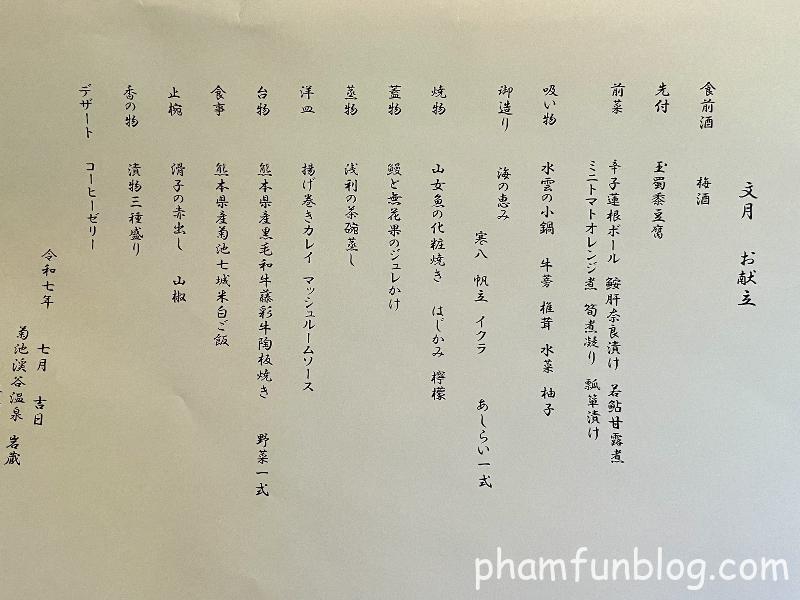 文月 お献立
食前酒 梅酒
先付 玉蜀黍豆腐
前菜 辛子蓮根ボール 鮟肝奈良漬け 若鮎甘露煮
ミニトマトオレンジ煮 筍煮凝り 瓢箪漬け
吸い物 水雲の小鍋 牛蒡 椎茸 水菜 柚子
御造り 海の恵み
寒八 帆立 イクラ あしらい一式
焼物 山女魚の化粧焼き はじかみ 檸檬
蓋物 鰻と無花果のジュレかけ
蒸物 浅利の茶碗蒸し
洋皿 揚げ巻きカレイ マッシュルームソース
台物 熊本県産黒毛和牛藤彩牛陶板焼き 野菜一式
食事 熊本県産菊池七城米白ご飯
止椀 滑子の赤出し 山椒
香の物 漬物三種盛り
デザート コーヒーゼリー
令和七年 七月 吉日
菊池渓谷温泉 岩蔵
phamfunblog.com